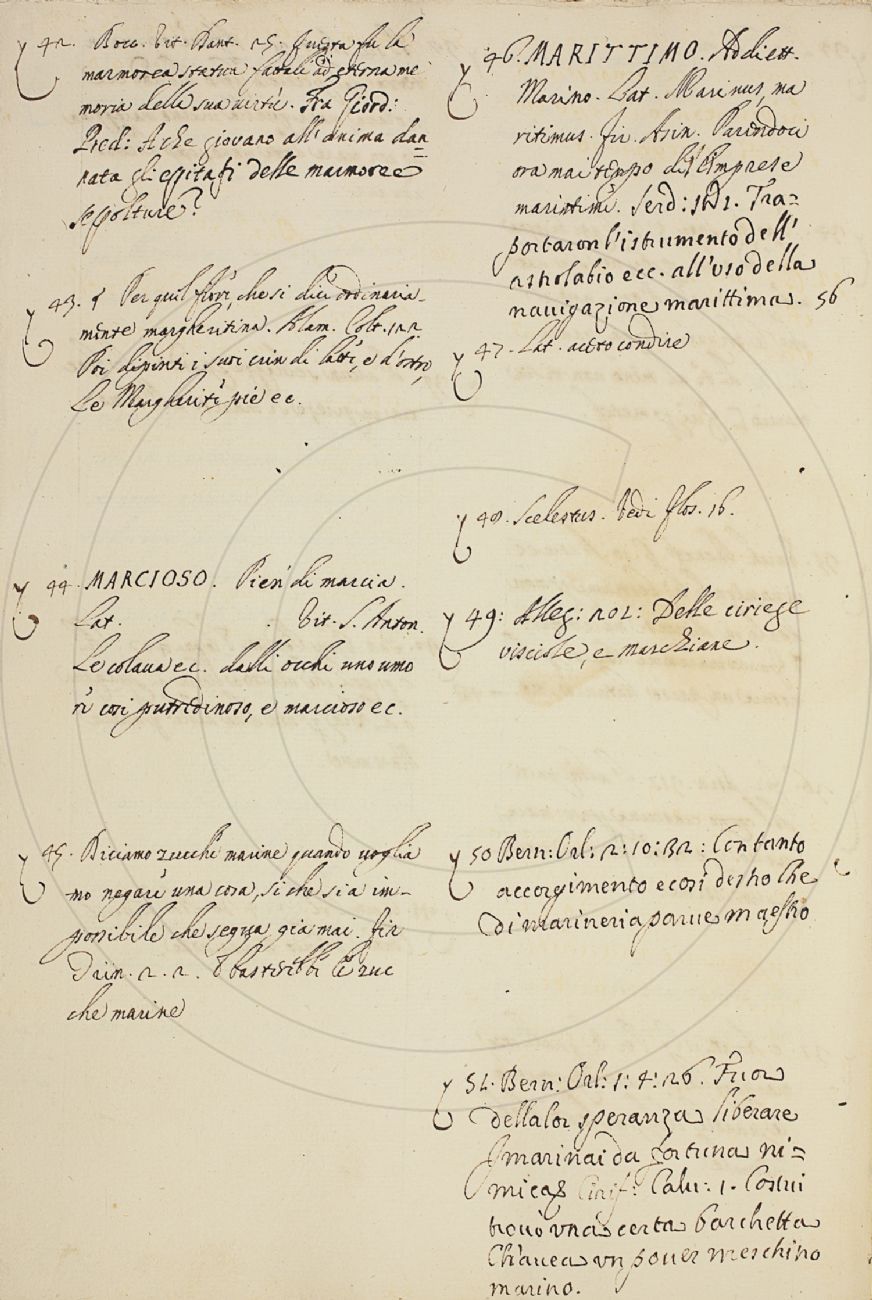 42. Bocc. Vit. Dant. 25. Questa fu la
marmorea statua fattale ad eterna me
moria della sua virtù. Fra Giord:
Pred: A che giovano all'anima dan=
nata gli epitafi delle marmoree
sepolture?
43. ¶ Per quel fiore, che si dice ordinaria_
mente margheritina. Alam. Colt. 122
Poi dipinti i suoi crin di latte, e d'ostro,
Le Margherite pie ec.
44. MARCIOSO. Pien di marcia.
Lat. Vit. S. Anton.
Le colava ec. dalli occhi uno umo
re così putredinoso, e marcioso ec.
45. Diciamo zucche marine quando voglia
mo negare una cosa, si che sia im_
possibile che segua giamai. Fir
Trin. 2. 2. E basterebbe le zuc
che marine
46. MARITTIMO. Addiett.
Marino. Lat. Marinus, ma
ritimus. Fir. Asin. Parendoci
oramai tempo dell'imprese
marittime. Serd: Tra=
portaron l'istrumento dell'
astrolabio ecc. all'uso della
navigazione marittima. 56
47. Lat. aceto condire
48. Scelestus. Vedi Flos. 16.
49: Alleg: 202: Delle ciriege
visciole, e marchiane.
50 Bern: Orl: 2: 10: 32: Con tanto
accorgimento e così destro Che
di marineria parve maestro
51. Bern: Orl: 1: 4: 26. Fuor
della lor speranza liberare
I marinai da fortuna ni=
mica & Cirif: Calv: 1. Costui
trovò vna certa barchetta
Ch'avea vn pover meschino
marino.